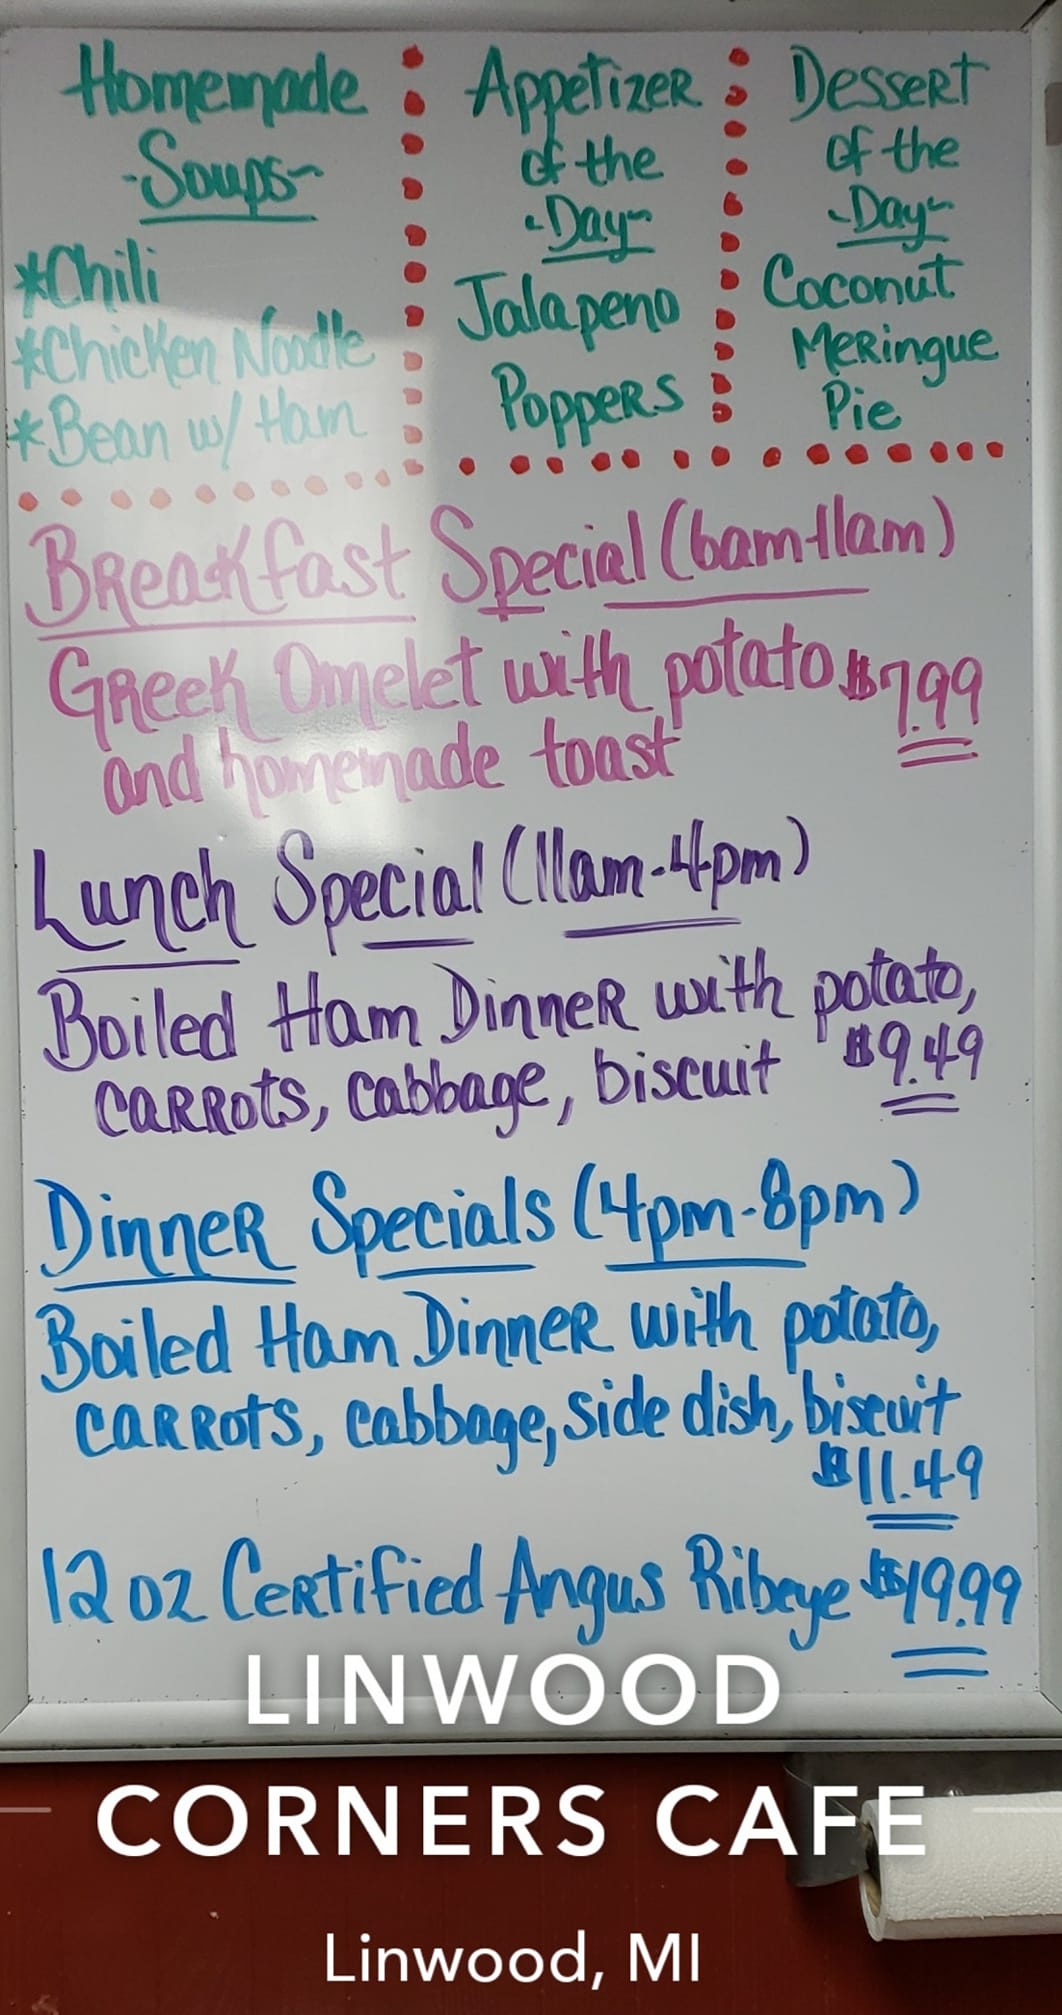 Homemade
-Soups-
*Chili
*Chicken Noodle
*Bean w/ Ham
Appetizer
of the
-Day-
Jalapeno
Poppers
Dessert
of the
-Day-
Coconut
Meringue
Pie
Breakfast Special (6am-11am)
Greek Omelet with potato $7.99
and homemade toast
Lunch Special (11am-4pm)
Boiled Ham Dinner with potato,
carrots, cabbage, biscuit $9.49
Dinner Specials (4pm-8pm)
Boiled Ham Dinner with potato,
carrots, cabbage, side dish, biscuit
$11.49
12 oz Certified Angus Ribeye $19.99
LINWOOD
CORNERS CAFE
Linwood, MI